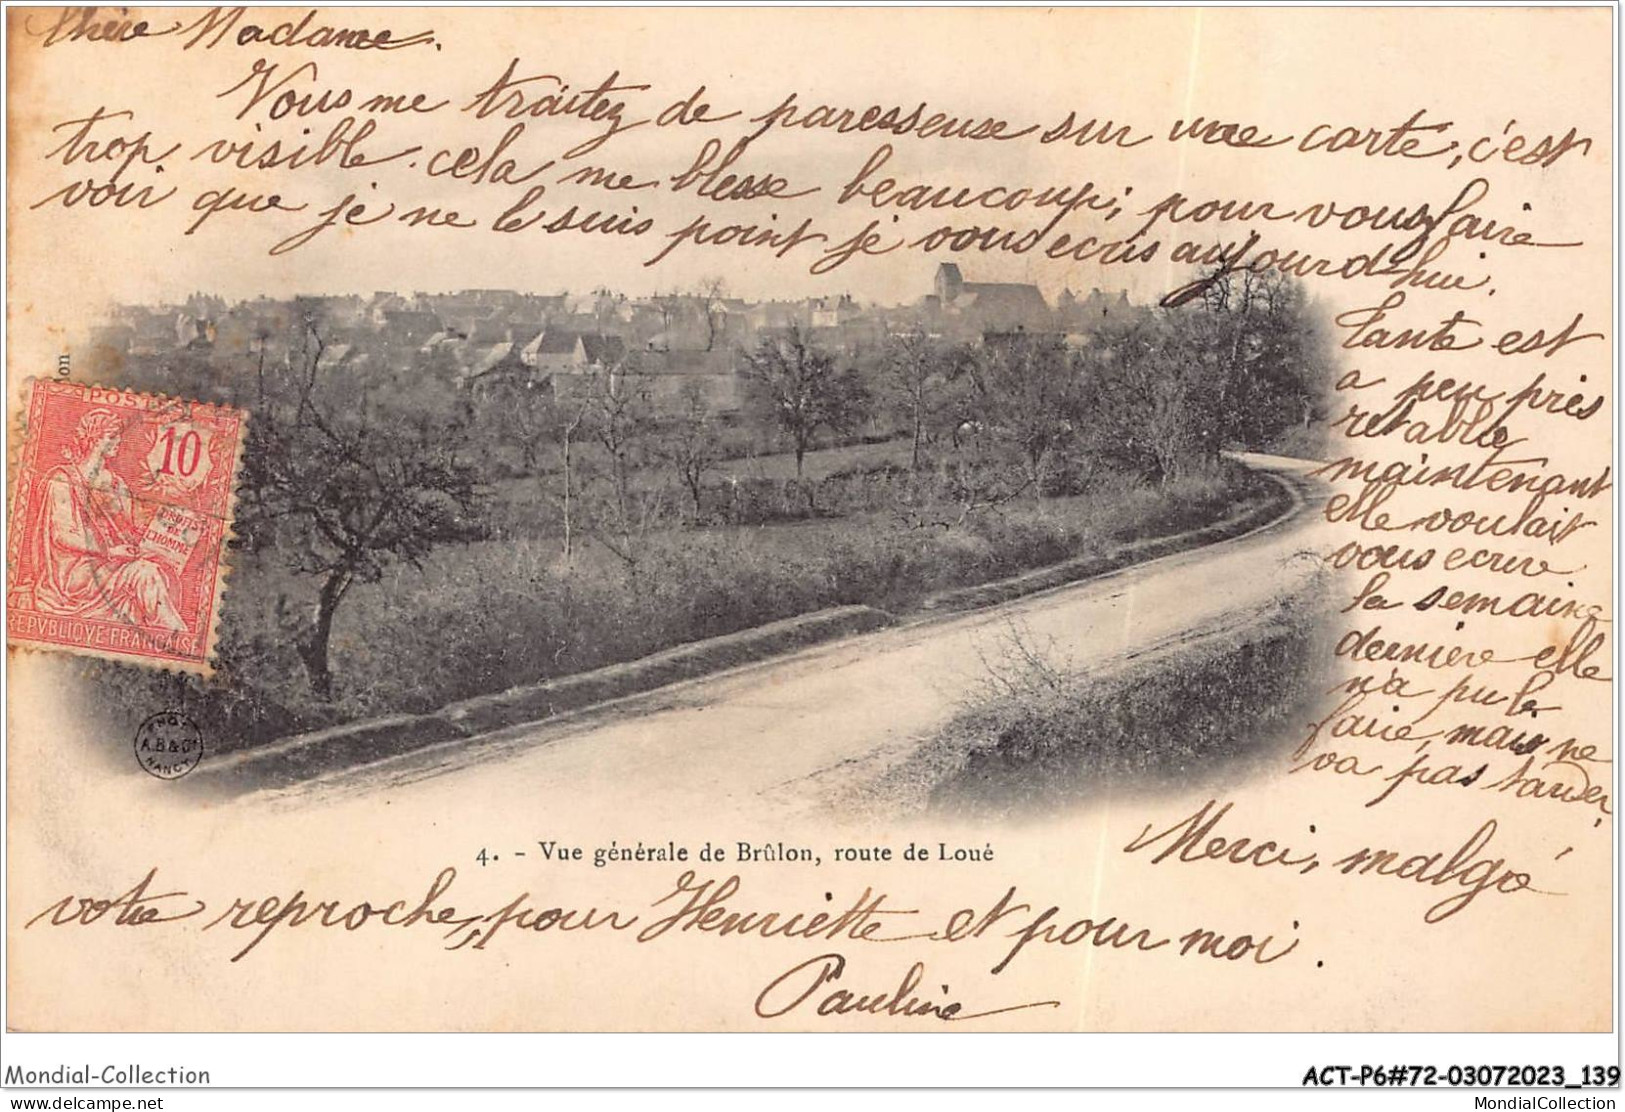 Chère Madame.
Vous me traitez de paresseuse sur une carte, c'est
trop visible. cela me blesse beaucoup; pour vous faire
voir que je ne le suis point je vous ecris aujourd'hui.
Tante est
a peu près
retablie
maintenant
elle voulait
vous ecrire
la semaine
dernière elle
n'a pu le
faire, mais ne
va pas tarder.
Merci, malgré
votre reproche, pour Henriette et pour moi.
Pauline
lon
POSTES
10
DROITS
DE
L'HOMME
REPVBLIQVE FRANÇAISE
PHOT.
A.B & Cie
NANCY
4. - Vue générale de Brûlon, route de Loué
Mondial-Collection
ACT-P6#72-03072023_139
delcampe.net
MondialCollection